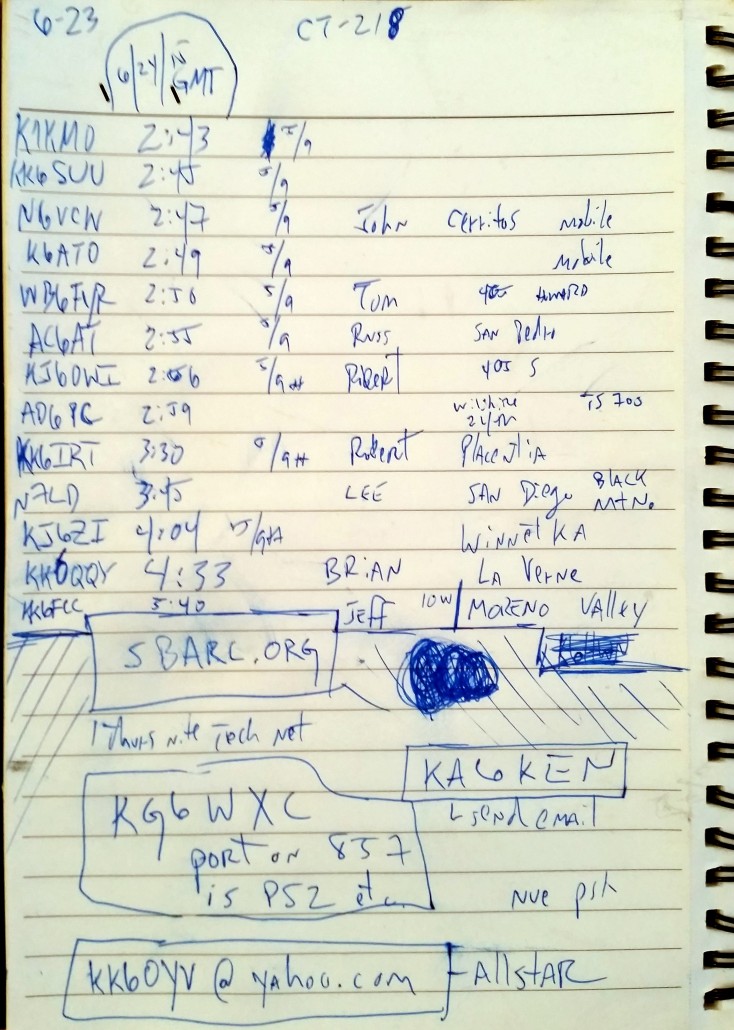 6-23 CT-218
6/24 IN
GMT
K1KMO 2:43 5/9
KK6SUU 2:45 5/9
N6VCW 2:47 5/9 John Cerritos mobile
K6ATO 2:49 5/9 mobile
2:50 5/9 Tom
AC6AT 2:55 5/9 Russ SAN Pedro
KJ6OWI 2:56 5/9++ 405 S
AD6YC 2:59 Wilshire TS 700
KK6IRT 3:30 5/9++ Robert Placentia
N7LD 3:45 LEE SAN Diego BLACK MTN.
KJ6ZI 4:04 5/9++ WINNETKA
KK6QQY 4:33 BRIAN LA Verne
KK6FCC 5:40 JEFF 10W MORENO VAlley
SBARC.ORG
Thurs nite Tech Net
KA6KEN
KG6WXC send email
port on 857
is PS2 etc
nue psk
KK6OYV@yahoo.com - AllstAR